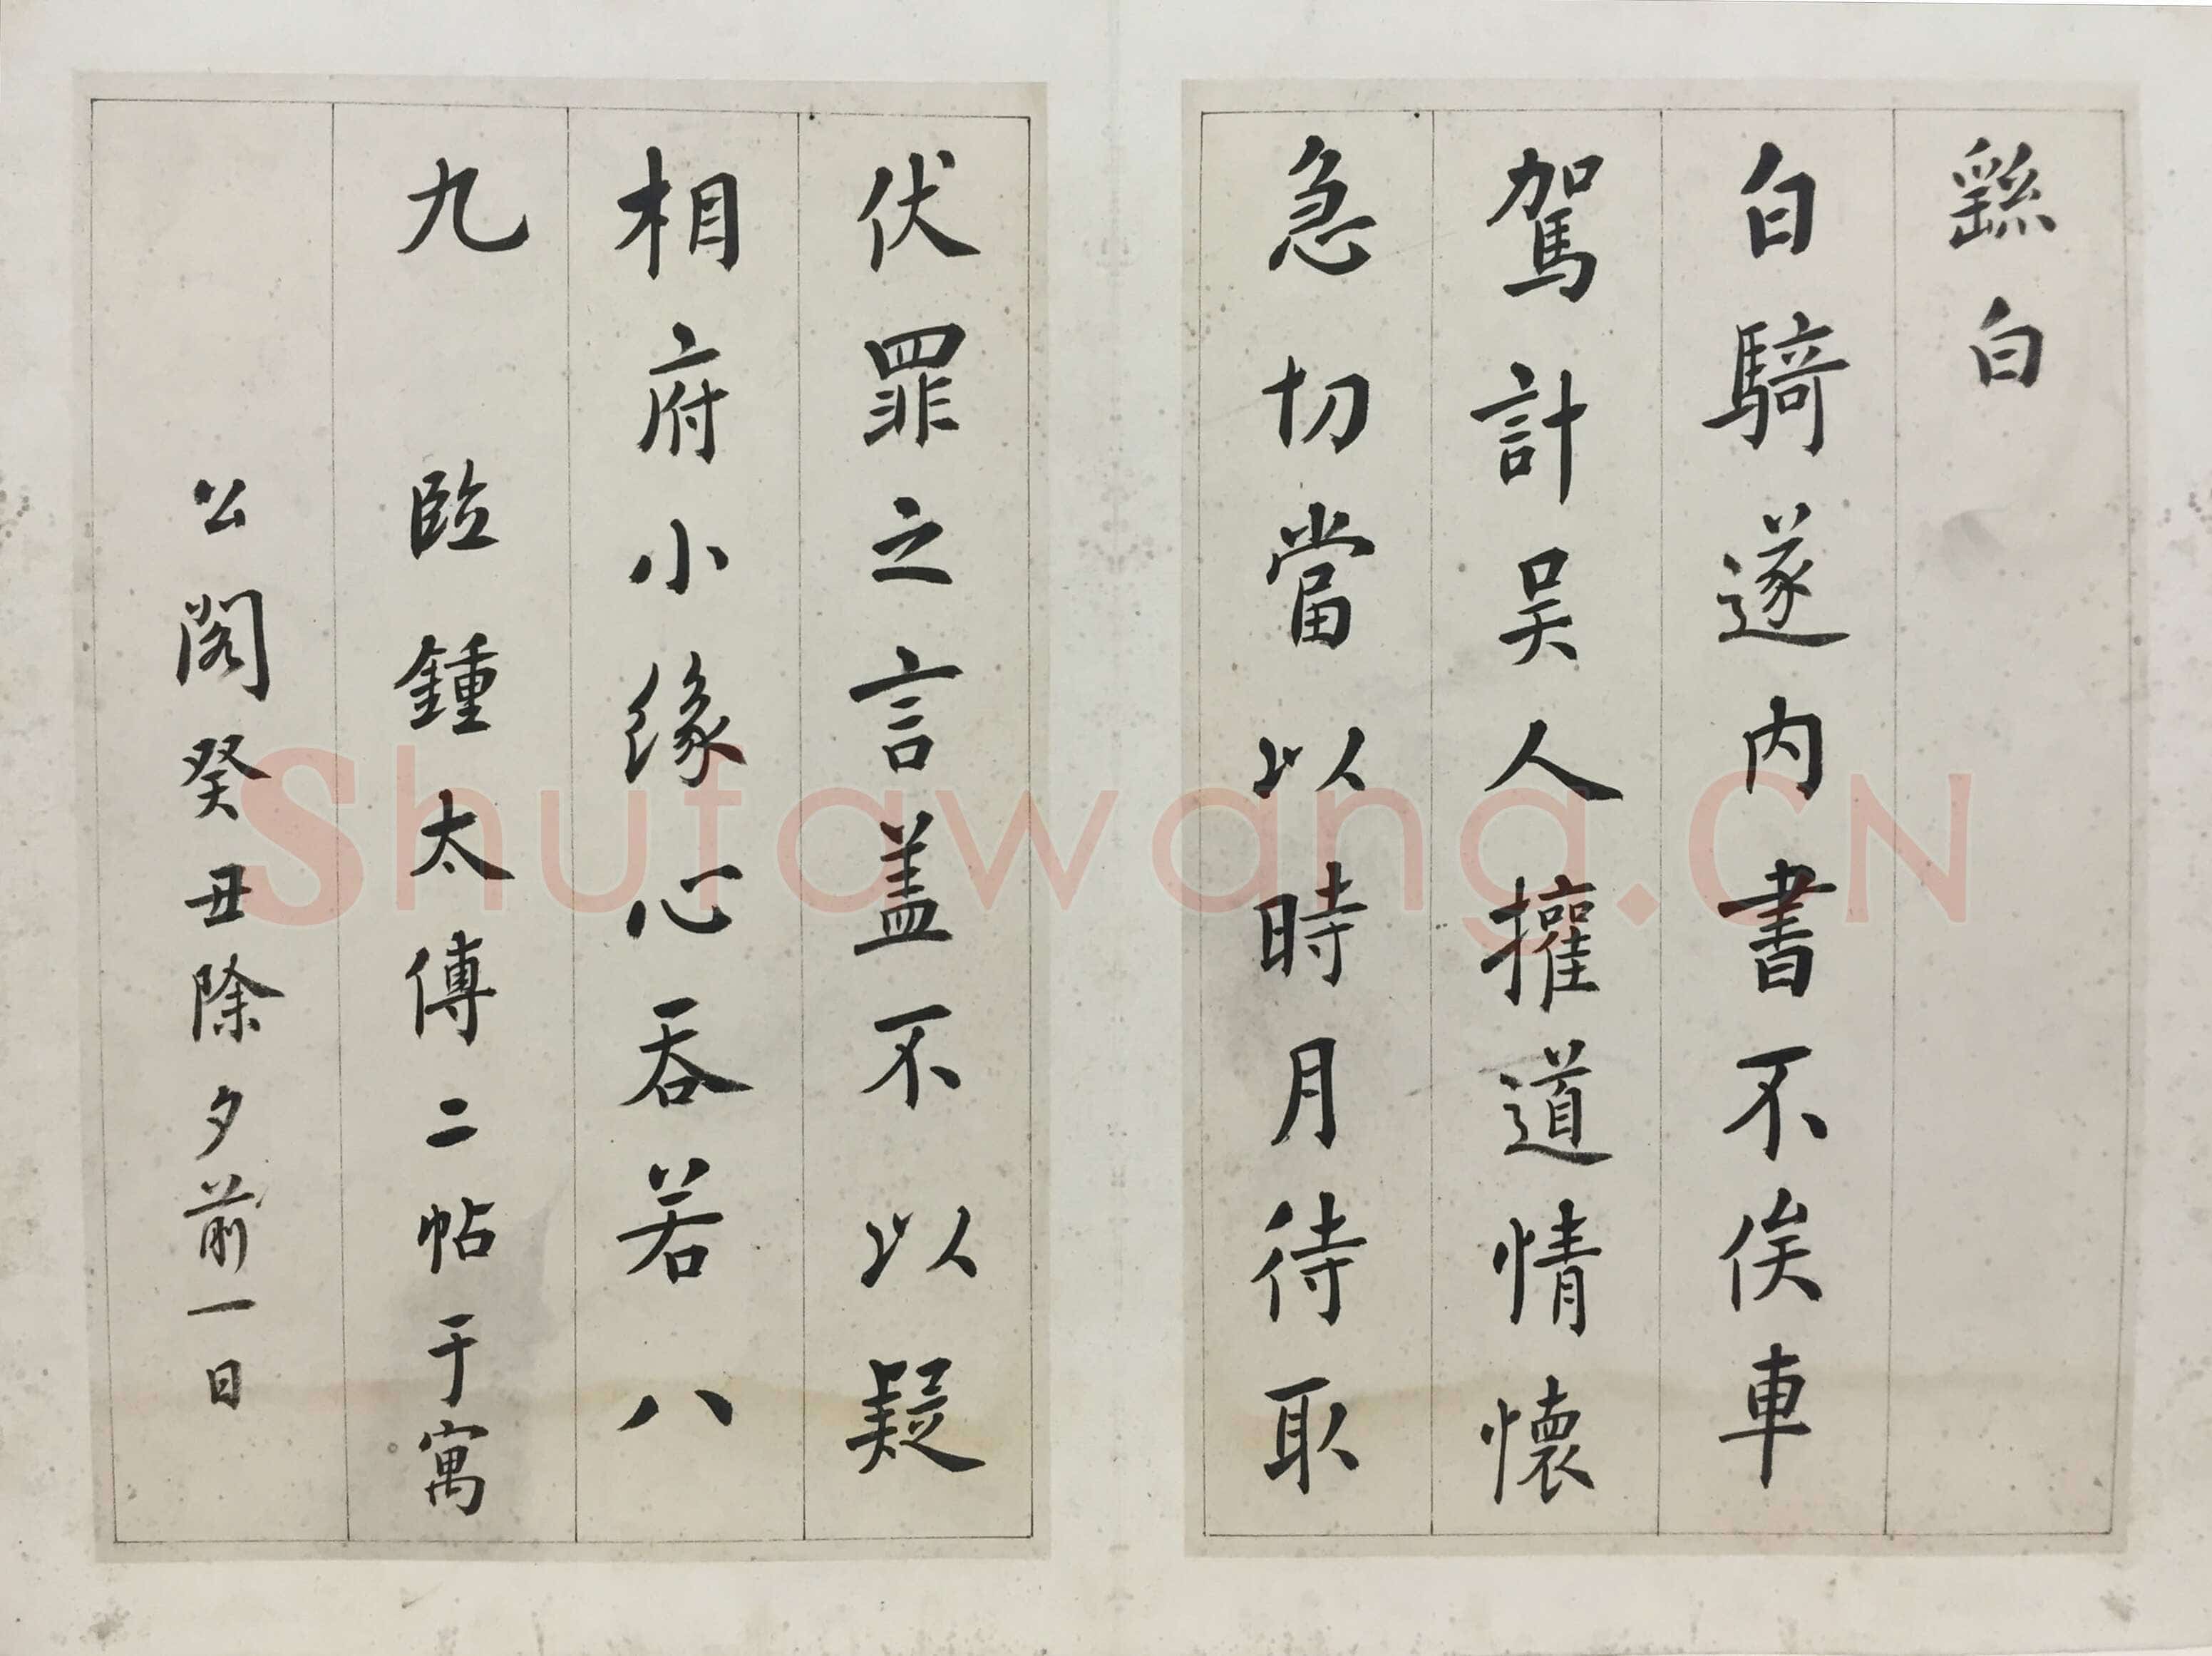 繇白
白騎遂內書不俟車
駕計吴人權道情懷
急切當以時月待取
伏罪之言蓋不以疑
相府小緣心吞若八
九 臨鍾太傅二帖于寓
公閣癸丑除夕前一日
Shufawang.CN